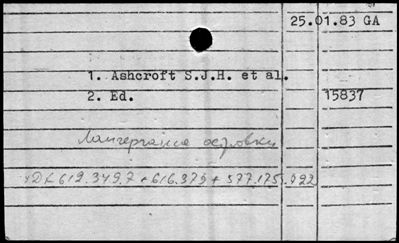 25.01.83 GA
1. Ashcroft S.J.H. et al.
2. Ed. 15837
Лангерганса островки
УДК 612.349.7 + 616.379 + 577.175.722